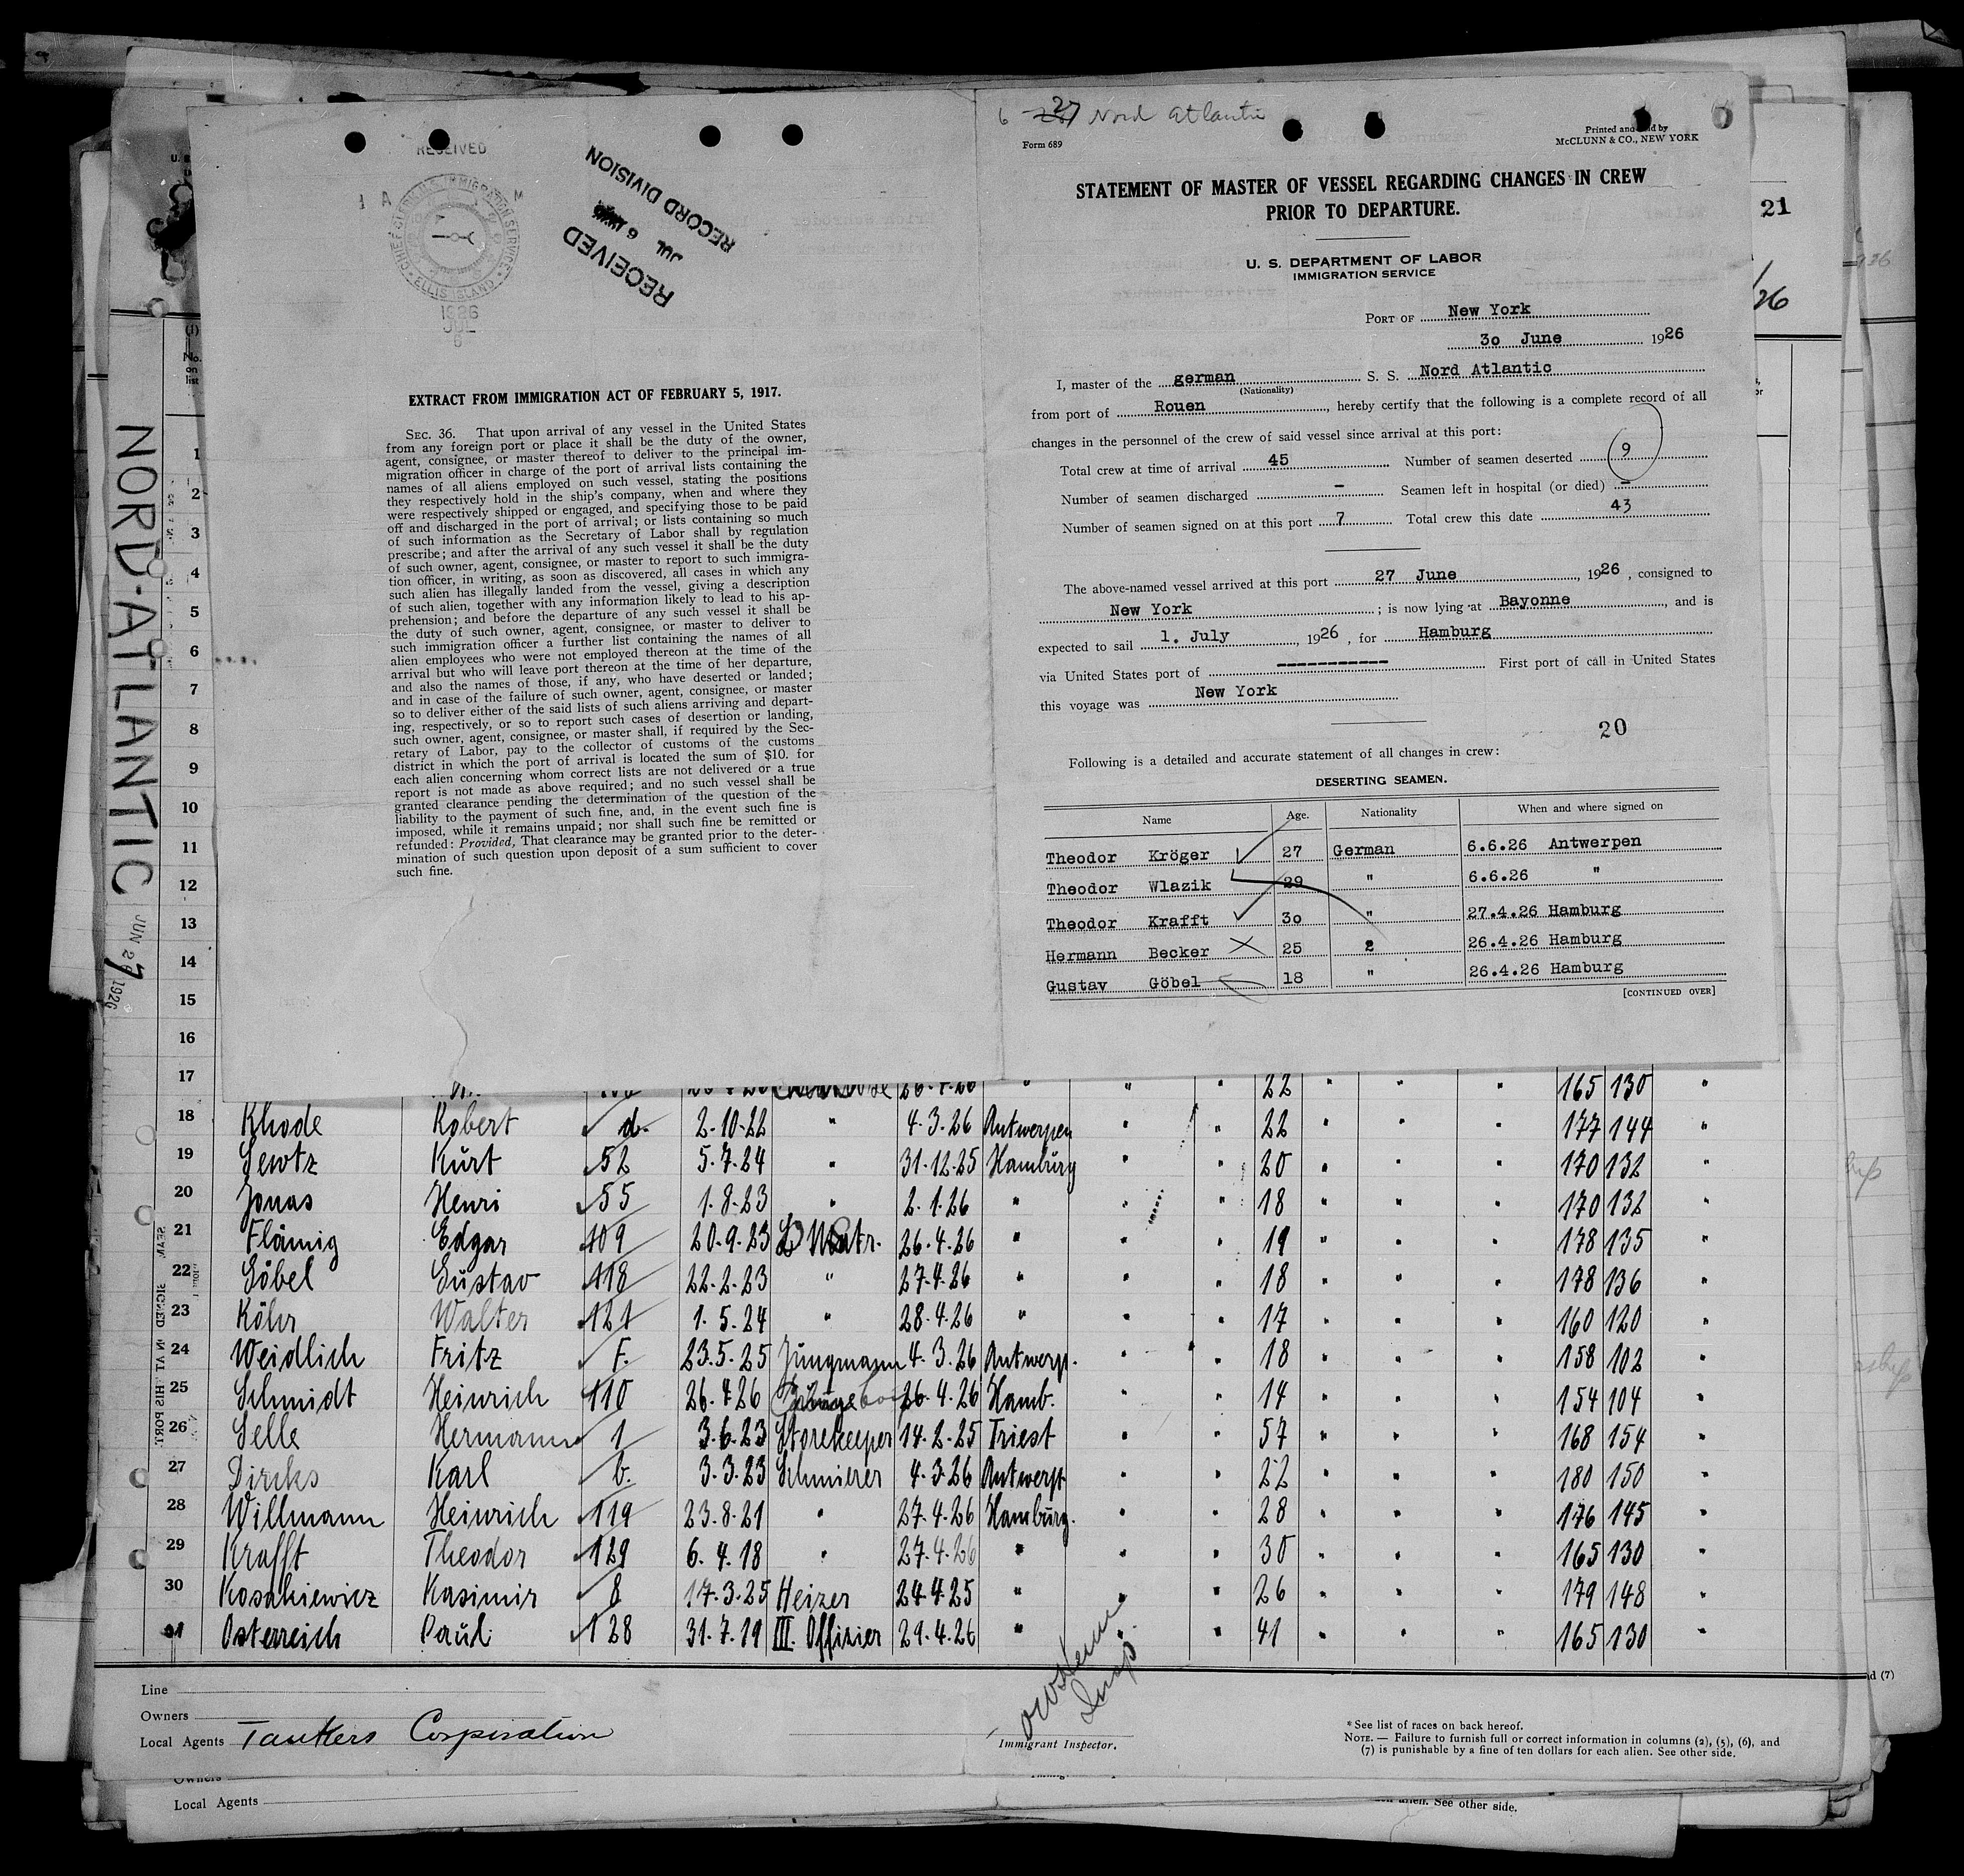 6-27 Nord Atlantic
Form 689
McCLUNN & CO., NEW YORK
STATEMENT OF MASTER OF VESSEL REGARDING CHANGES IN CREW
PRIOR TO DEPARTURE.
U. S. DEPARTMENT OF LABOR
IMMIGRATION SERVICE
PORT OF New York
30 June 1926
I, master of the german S. S. Nord Atlantic
(Nationality)
from port of Rouen, hereby certify that the following is a complete record of all
changes in the personnel of the crew of said vessel since arrival at this port:
Total crew at time of arrival 45 Number of seamen deserted 9
Number of seamen discharged - Seamen left in hospital (or died) -
Number of seamen signed on at this port 7 Total crew this date 43
The above-named vessel arrived at this port 27 June, 1926, consigned to
New York; is now lying at Bayonne, and is
expected to sail 1. July, 1926, for Hamburg
via United States port of ----------- First port of call in United States
this voyage was New York
20
Following is a detailed and accurate statement of all changes in crew:
DESERTING SEAMEN.
Name Age. Nationality When and where signed on
Theodor Kröger 27 German 6.6.26 Antwerpen
Theodor Wlazik 29 " 6.6.26 "
Theodor Krafft 30 " 27.4.26 Hamburg
Hermann Becker 25 2 26.4.26 Hamburg
Gustav Göbel 18 " 26.4.26 Hamburg
[CONTINUED OVER]
RECEIVED
CHIEF CLERK'S IMMIGRATION SERVICE
ELLIS ISLAND
1926
JUL
6
RECEIVED
JUL 6
RECORD DIVISION
EXTRACT FROM IMMIGRATION ACT OF FEBRUARY 5, 1917.
SEC. 36. That upon arrival of any vessel in the United States
from any foreign port or place it shall be the duty of the owner,
agent, consignee, or master thereof to deliver to the principal im-
migration officer in charge of the port of arrival lists containing the
names of all aliens employed on such vessel, stating the positions
they respectively hold in the ship's company, when and where they
were respectively shipped or engaged, and specifying those to be paid
off and discharged in the port of arrival; or lists containing so much
of such information as the Secretary of Labor shall by regulation
prescribe; and after the arrival of any such vessel it shall be the duty
of such owner, agent, consignee, or master to report to such immigra-
tion officer, in writing, as soon as discovered, all cases in which any
such alien has illegally landed from the vessel, giving a description
of such alien, together with any information likely to lead to his ap-
prehension; and before the departure of any such vessel it shall be
the duty of such owner, agent, consignee, or master to deliver to
such immigration officer a further list containing the names of all
alien employees who were not employed thereon at the time of the
arrival but who will leave port thereon at the time of her departure,
and also the names of those, if any, who have deserted or landed;
and in case of the failure of such owner, agent, consignee, or master
so to deliver either of the said lists of such aliens arriving and depart-
ing, respectively, or so to report such cases of desertion or landing,
such owner, agent, consignee, or master shall, if required by the Sec-
retary of Labor, pay to the collector of customs of the customs
district in which the port of arrival is located the sum of $10. for
each alien concerning whom correct lists are not delivered or a true
report is not made as above required; and no such vessel shall be
granted clearance pending the determination of the question of the
liability to the payment of such fine, and, in the event such fine is
imposed, while it remains unpaid; nor shall such fine be remitted or
refunded: Provided, That clearance may be granted prior to the deter-
mination of such question upon deposit of a sum sufficient to cover
such fine.
21
/26
NORD-ATLANTIC
JUN 27 1926
No. on list
1
2
3
4
5
6
7
8
9
10
11
12
13
14
15
16
17 22 " " " 165 130 "
18 Rhode Robert d. 2-10-22 " 4.3.26 Antwerpen " " 22 " " " 177 144 "
19 Sewtz Kurt 52 5.7.24 " 31.12.25 Hamburg " " 20 " " " 170 132 "
20 Jonas Henri 55 1.8.23 " 2.1.26 " " " 18 " " " 170 132 "
21 Flämig Edgar 109 20.9.23 L Matr. 26.4.26 " " " 19 " " " 178 135 "
22 Göbel Gustav 118 22.2.23 " 27.4.26 " " " 18 " " " 178 136 "
23 Köhr Walter 121 1.5.24 " 28.4.26 " " " 17 " " " 160 120 "
24 Weidlich Fritz F. 23.5.25 Jungmann 4.3.26 Antwerp. " " 18 " " " 158 102 "
25 Schmidt Heinrich 110 26.4.26 26.4.26 Hamb. " " 14 " " " 154 104 "
26 Selle Hermann 1 3.6.23 Storekeeper 14.2.25 Triest " " 57 " " " 168 154 "
27 Dircks Karl b. 3.3.23 Schmierer 4.3.26 Antwerp. " " 22 " " " 180 150 "
28 Willmann Heinrich 119 23.8.21 " 27.4.26 Hamburg. " " 28 " " " 176 145 "
29 Krafft Theodor 129 6.4.18 " 27.4.26 " " " 30 " " " 165 130 "
30 Kosakiewicz Kasimir 8 17.3.25 Heizer 24.4.25 " " " 26 " " " 179 148 "
31 Osterreich Paul 128 31.7.19 III. Offizier 29.4.26 " " " 41 " " " 165 130 "
Line
Owners
Local Agents Tankers Corporation
Immigrant Inspector.
*See list of races on back hereof.
NOTE.—Failure to furnish full or correct information in columns (2), (5), (6), and
(7) is punishable by a fine of ten dollars for each alien. See other side.
Owners
Local Agents
See other side.